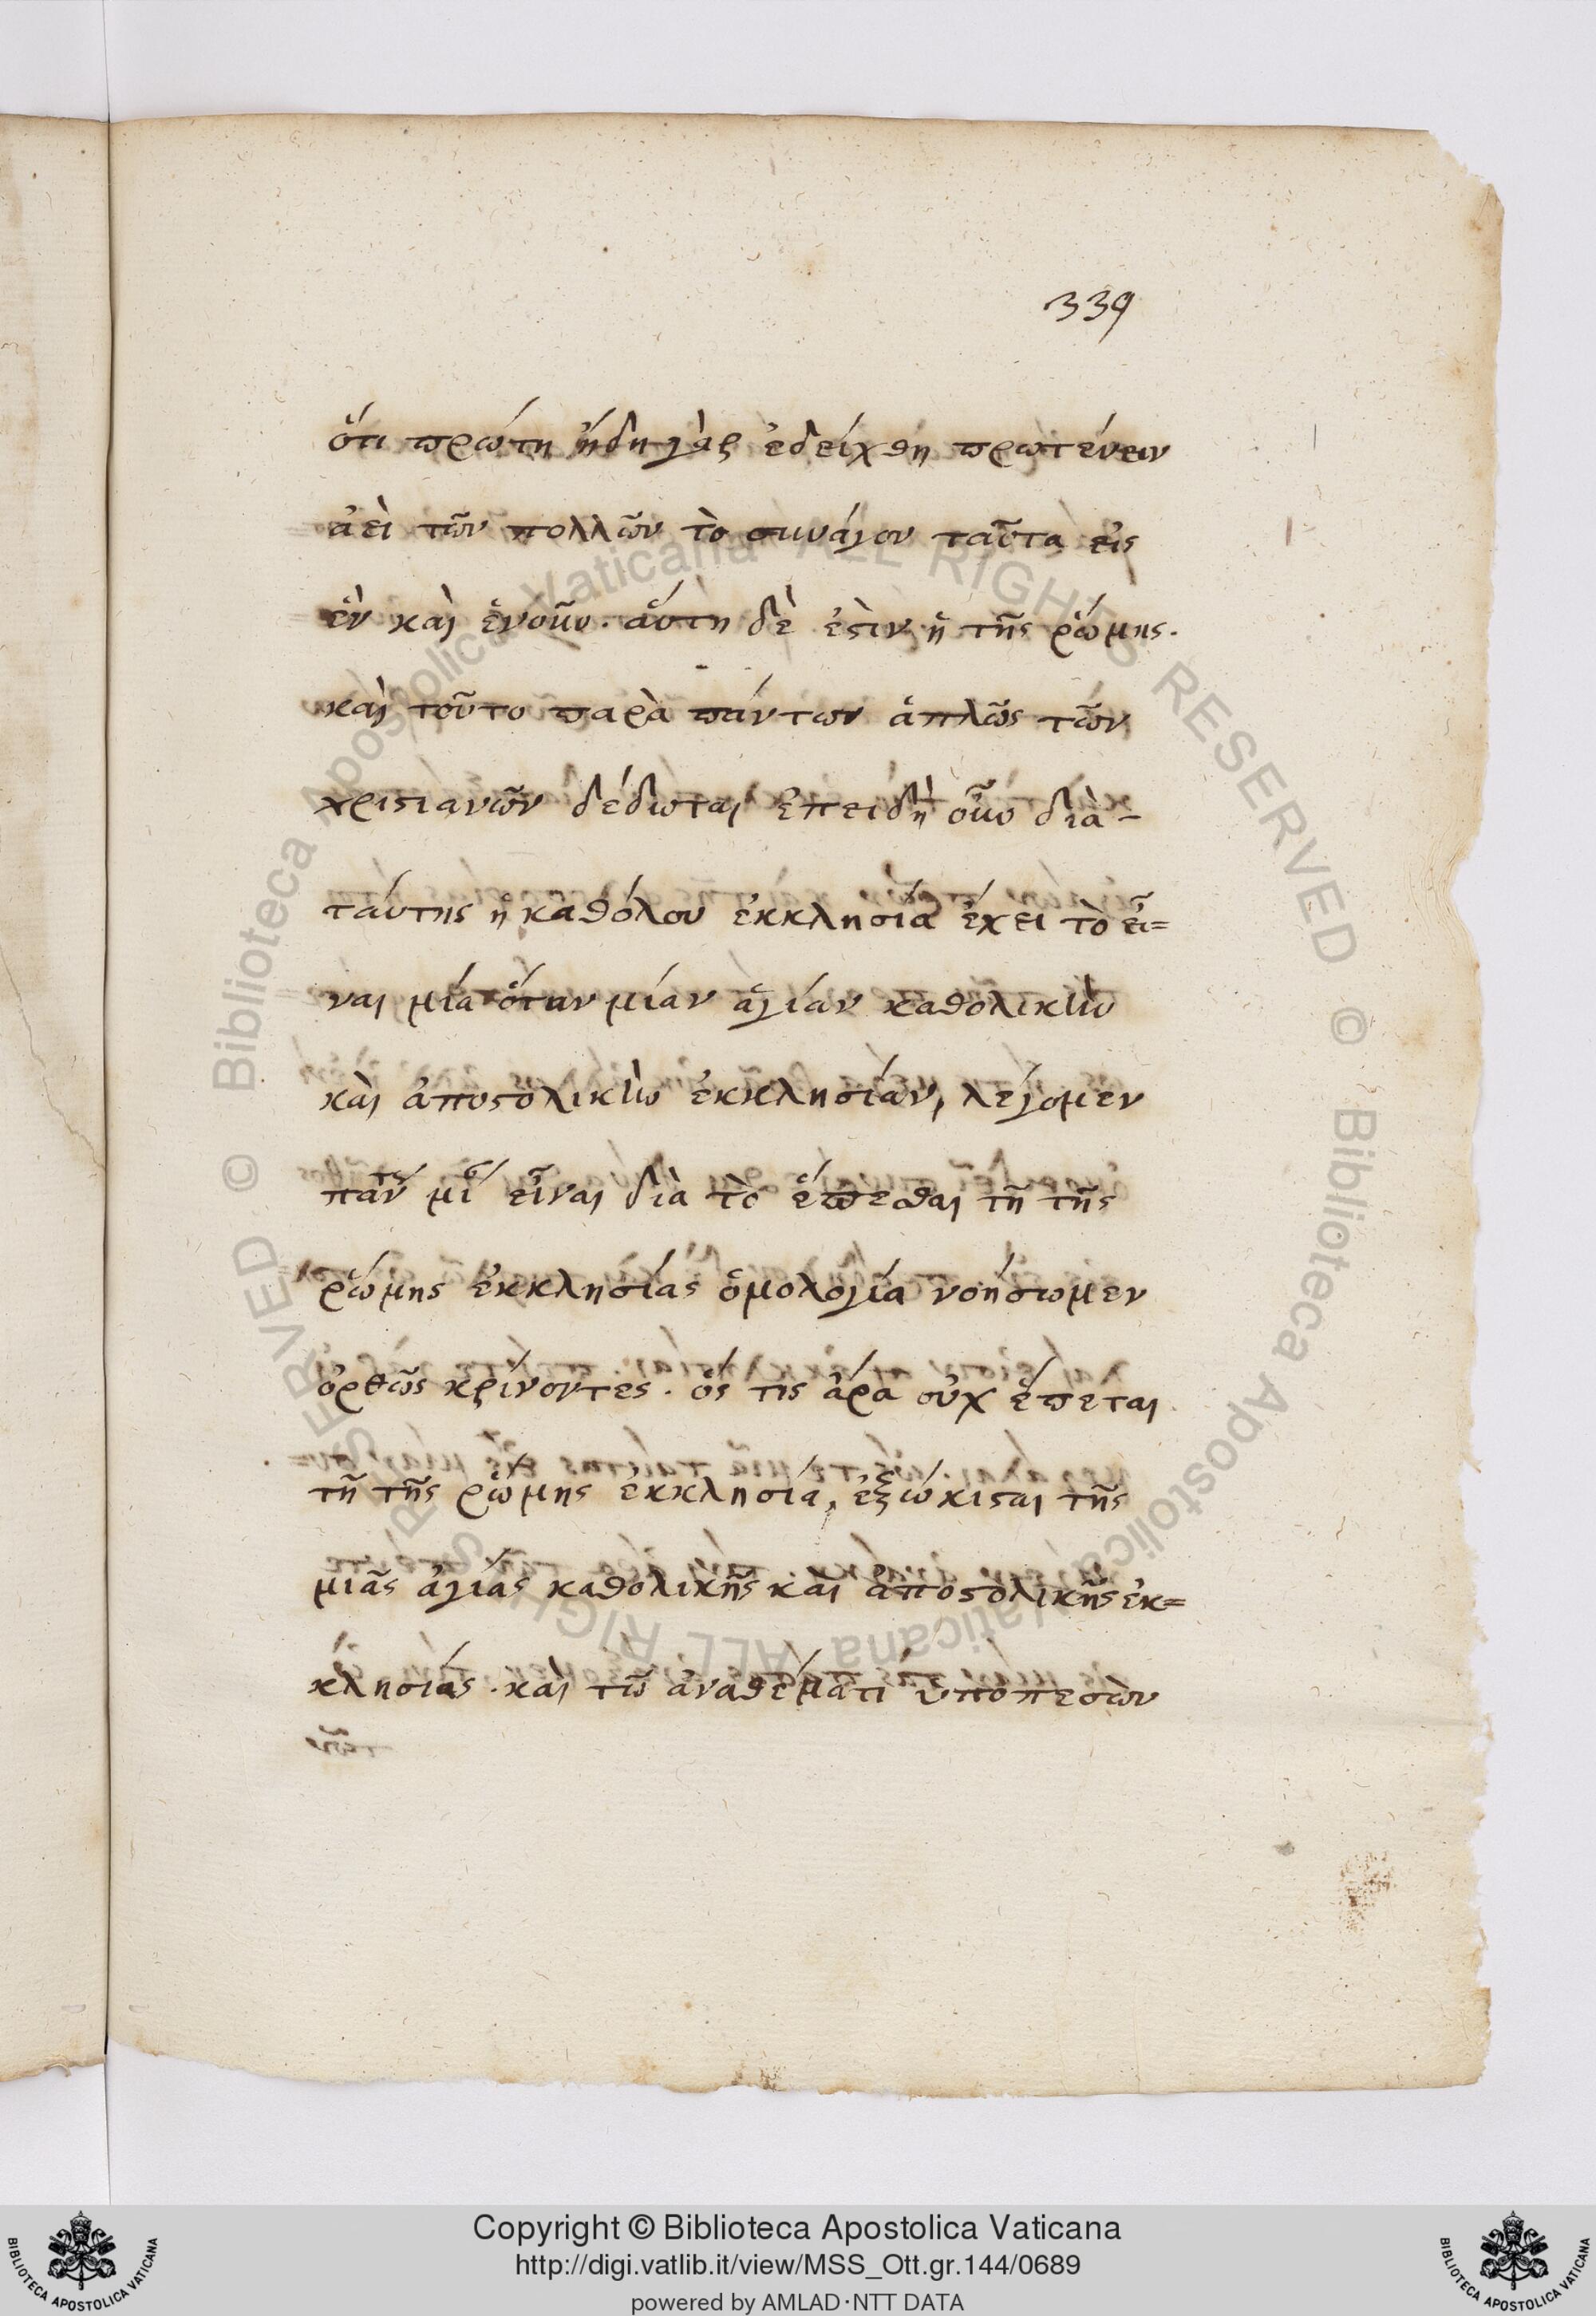 339
ὅτι πρώτη ἤδη γὰρ ἐδείχθη πρωτεύειν
ἀεὶ τῶν πολλῶν τὸ συνάγον ταῦτα εἰς
ἓν καὶ ἑνοῦν. αὕτη δὲ ἐστὶν ἡ τῆς ῥώμης.
καὶ τοῦτο παρὰ πάντων ἁπλῶς τῶν
χριστιανῶν δέδωται ἐπειδὴ οὖν διὰ-
ταύτης ἡ καθόλου ἐκκλησία ἔχει τὸ εἶ=
ναι μία ὅταν μίαν ἁγίαν καθολικὴν
καὶ ἀποστολικὴν ἐκκλησίαν, λέγομεν
εἶναι διὰ τὸ ἕπεσθαι τῇ τῆς
ῥώμης ἐκκλησίας ὁμολογία νοήσωμεν
ὀρθῶς κρίνοντες. ὅς τις ἄρα οὐχ ἕπεται
τῇ τῆς ῥώμης ἐκκλησία, ἐξώκισται τῆς
μιᾶς ἁγίας καθολικῆς καὶ ἀποστολικῆς ἐκ=
κλησίας. καὶ τῶ ἀναθέματι ὑποπεσὼν
Copyright © Biblioteca Apostolica Vaticana
http://digi.vatlib.it/view/MSS_Ott.gr.144/0689
powered by AMLAD·NTT DATA
BIBLIOTECA APOSTOLICA VATICANA
BIBLIOTECA APOSTOLICA VATICANA
© Biblioteca Apostolica Vaticana ALL RIGHTS RESERVED © Biblioteca Apostolica Vaticana ALL RIGHTS RESERVED